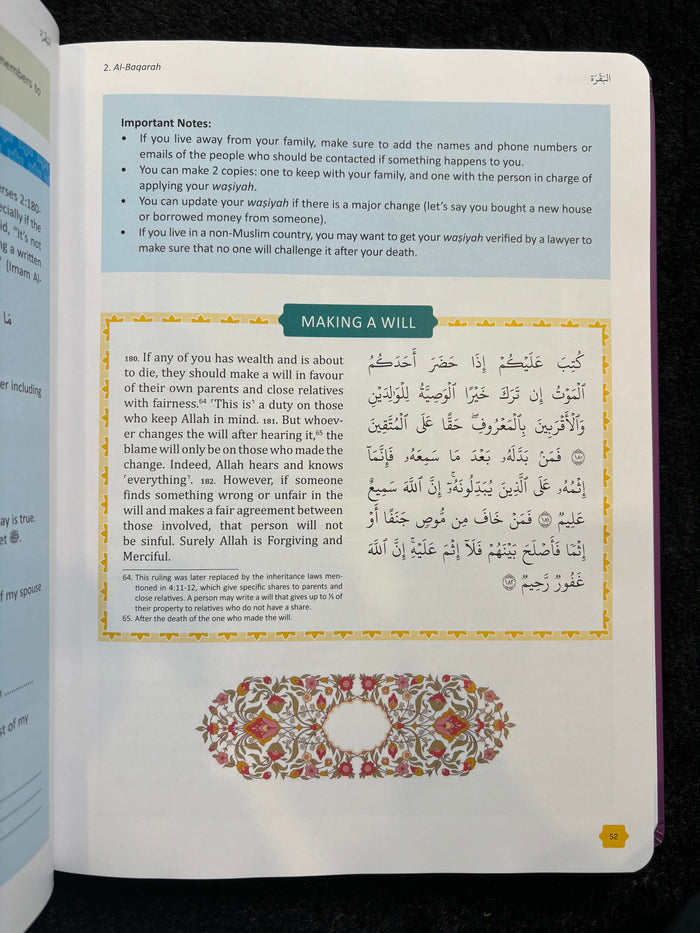 البَقَرَة
2. Al-Baqarah
members to
erses 2:180-
ecially if the
id, "It's not
ng a written
(Imam Al-
مَا
er including
ay is true.
et ﷺ.
f my spouse
st of my
Important Notes:
• If you live away from your family, make sure to add the names and phone numbers or
emails of the people who should be contacted if something happens to you.
• You can make 2 copies: one to keep with your family, and one with the person in charge of
applying your waṣiyah.
• You can update your waṣiyah if there is a major change (let's say you bought a new house
or borrowed money from someone).
• If you live in a non-Muslim country, you may want to get your waṣiyah verified by a lawyer to
make sure that no one will challenge it after your death.
MAKING A WILL
180. If any of you has wealth and is about
to die, they should make a will in favour
of their own parents and close relatives
with fairness.⁶⁴ ˹This is˺ a duty on those
who keep Allah in mind. 181. But whoev-
er changes the will after hearing it,⁶⁵ the
blame will only be on those who made the
change. Indeed, Allah hears and knows
˹everything˺. 182. However, if someone
finds something wrong or unfair in the
will and makes a fair agreement between
those involved, that person will not
be sinful. Surely Allah is Forgiving and
Merciful.
64. This ruling was later replaced by the inheritance laws men-
tioned in 4:11-12, which give specific shares to parents and
close relatives. A person may write a will that gives up to ⅓ of
their property to relatives who do not have a share.
65. After the death of the one who made the will.
كُتِبَ عَلَيْكُمْ إِذَا حَضَرَ أَحَدَكُمُ
ٱلْمَوْتُ إِن تَرَكَ خَيْرًا ٱلْوَصِيَّةُ لِلْوَٰلِدَيْنِ
وَٱلْأَقْرَبِينَ بِٱلْمَعْرُوفِ ۖ حَقًّا عَلَى ٱلْمُتَّقِينَ
١٨٠ فَمَنۢ بَدَّلَهُۥ بَعْدَ مَا سَمِعَهُۥ فَإِنَّمَآ
إِثْمُهُۥ عَلَى ٱلَّذِينَ يُبَدِّلُونَهُۥٓ ۚ إِنَّ ٱللَّهَ سَمِيعٌ
عَلِيمٌ ١٨١ فَمَنْ خَافَ مِن مُّوصٍ جَنَفًا أَوْ
إِثْمًا فَأَصْلَحَ بَيْنَهُمْ فَلَآ إِثْمَ عَلَيْهِ ۚ إِنَّ ٱللَّهَ
غَفُورٌ رَّحِيمٌ ١٨٢
52